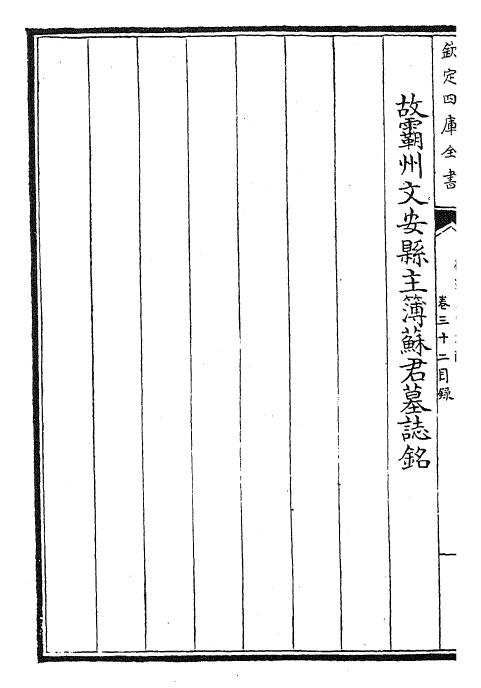 欽定四庫全書
卷三十二目錄
故霸州文安縣主簿蘇君墓誌銘